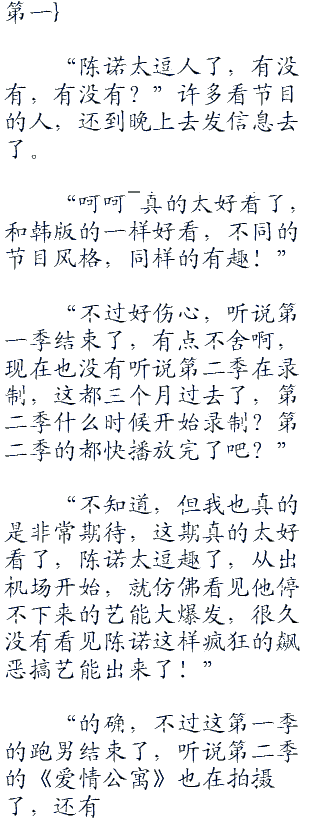 第一}
“陈诺太逗人了，有没
有，有没有？”许多看节目
的人，还到晚上去发信息去
了。
“呵呵~真的太好看了，
和韩版的一样好看，不同的
节目风格，同样的有趣！”
“不过好伤心，听说第
一季结束了，有点不舍啊，
现在也没有听说第二季在录
制，这都三个月过去了，第
二季什么时候开始录制？第
二季的都快播放完了吧？”
“不知道，但我也真的
是非常期待，这期真的太好
看了，陈诺太逗趣了，从出
机场开始，就仿佛看见他停
不下来的艺能大爆发，很久
没有看见陈诺这样疯狂的飙
恶搞艺能出来了！”
“的确，不过这第一季
的跑男结束了，听说第二季
的《爱情公寓》也在拍摄
了，还有